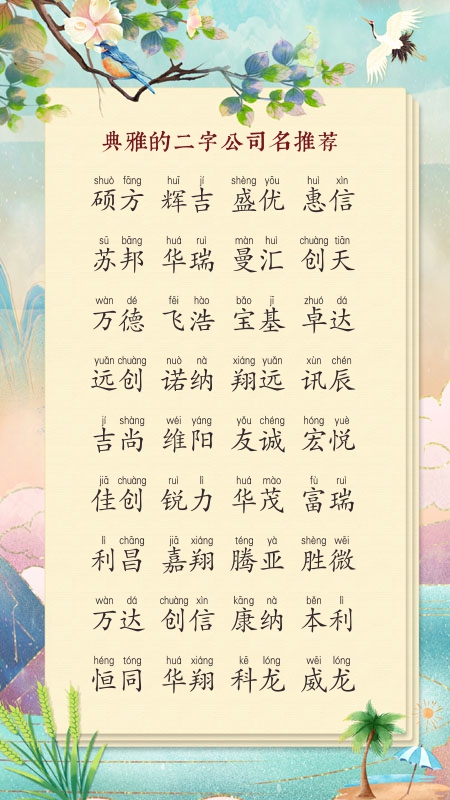 典雅的二字公司名推荐
shuò fāng huī jí shèng yōu huì xìn
硕方 辉吉 盛优 惠信
sū bāng huá ruì màn huì chuàng tiān
苏邦 华瑞 曼汇 创天
wàn dé fēi hào bǎo jī zhuó dá
万德 飞浩 宝基 卓达
yuǎn chuàng nuò nà xiáng yuǎn xùn chén
远创 诺纳 翔远 讯辰
jí shàng wéi yáng yǒu chéng hóng yuè
吉尚 维阳 友诚 宏悦
jiā chuàng ruì lì huá mào fù ruì
佳创 锐力 华茂 富瑞
lì chāng jiā xiáng téng yà shèng wēi
利昌 嘉翔 腾亚 胜微
wàn dá chuàng xìn kāng nà běn lì
万达 创信 康纳 本利
héng tóng huá xiáng kē lóng wēi lóng
恒同 华翔 科龙 威龙